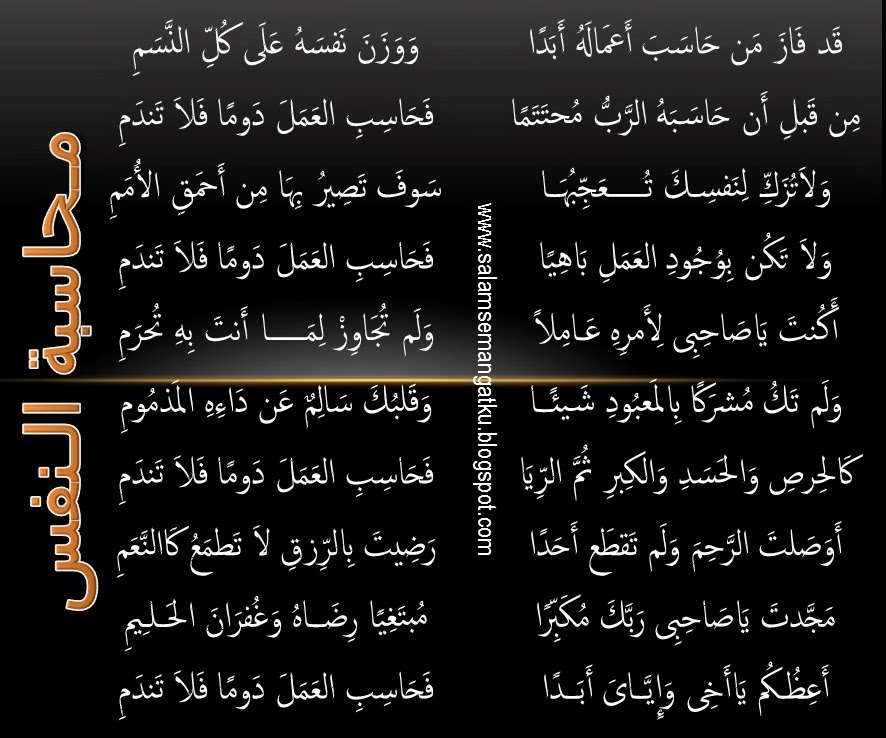 محاسبة النفس
قَد فَازَ مَن حَاسَبَ أَعمَالَهُ أَبَدًا وَوَزَنَ نَفسَهُ عَلَى كُلِّ النَّسَمِ
مِن قَبلِ أَن حَاسَبَهُ الرَّبُّ مُحتَتَمًا فَحَاسِبِ العَمَلَ دَومًا فَلاَ تَندَمِ
وَلاَتُزَكِّ لِنَفسِكَ تُـــعَجِّبُهَا سَوفَ تَصِيرُ بِهَا مِن أَحمَقِ الأُمَمِ
وَلاَ تَكُن بِوُجُودِ العَمَلِ بَاهِيًا فَحَاسِبِ العَمَلَ دَومًا فَلاَ تَندَمِ
أَكُنتَ يَاصَاحِبِى لِأَمرِهِ عَامِلاً وَلَم تُجَاوِزْ لِمَـــا أَنتَ بِهِ تُحرَمِ
وَلَم تَكُ مُشرَكًا بِالمَعبُودِ شَيئًـا وَقَلبُكَ سَالِمٌ عَن دَاءِهِ المَذمُومِ
كَالحِرصِ وَالحَسَدِ وَالكِبرِ ثُمَّ الرِّيَا فَحَاسِبِ العَمَلَ دَومًا فَلاَ تَندَمِ
أَوَصَلتَ الرَّحِمَ وَلَم تَقطَع أَحَدًا رَضِيتَ بِالرِّزقِ لاَ تَطمَعُ كَاالنَّعَمِ
مَجَّدتَ يَاصَاحِبِى رَبَّكَ مُكَبِّرًا مُبتَغِيًا رِضَـاهُ وَغُفرَانَ الحَـلِـيمِ
أَعِظُكُم يَاأَخِى وَإِيَّـاىَ أَبَـدًا فَحَاسِبِ العَمَلَ دَومًا فَلاَ تَندَمِ
www.salamsemangatku.blogspot.com